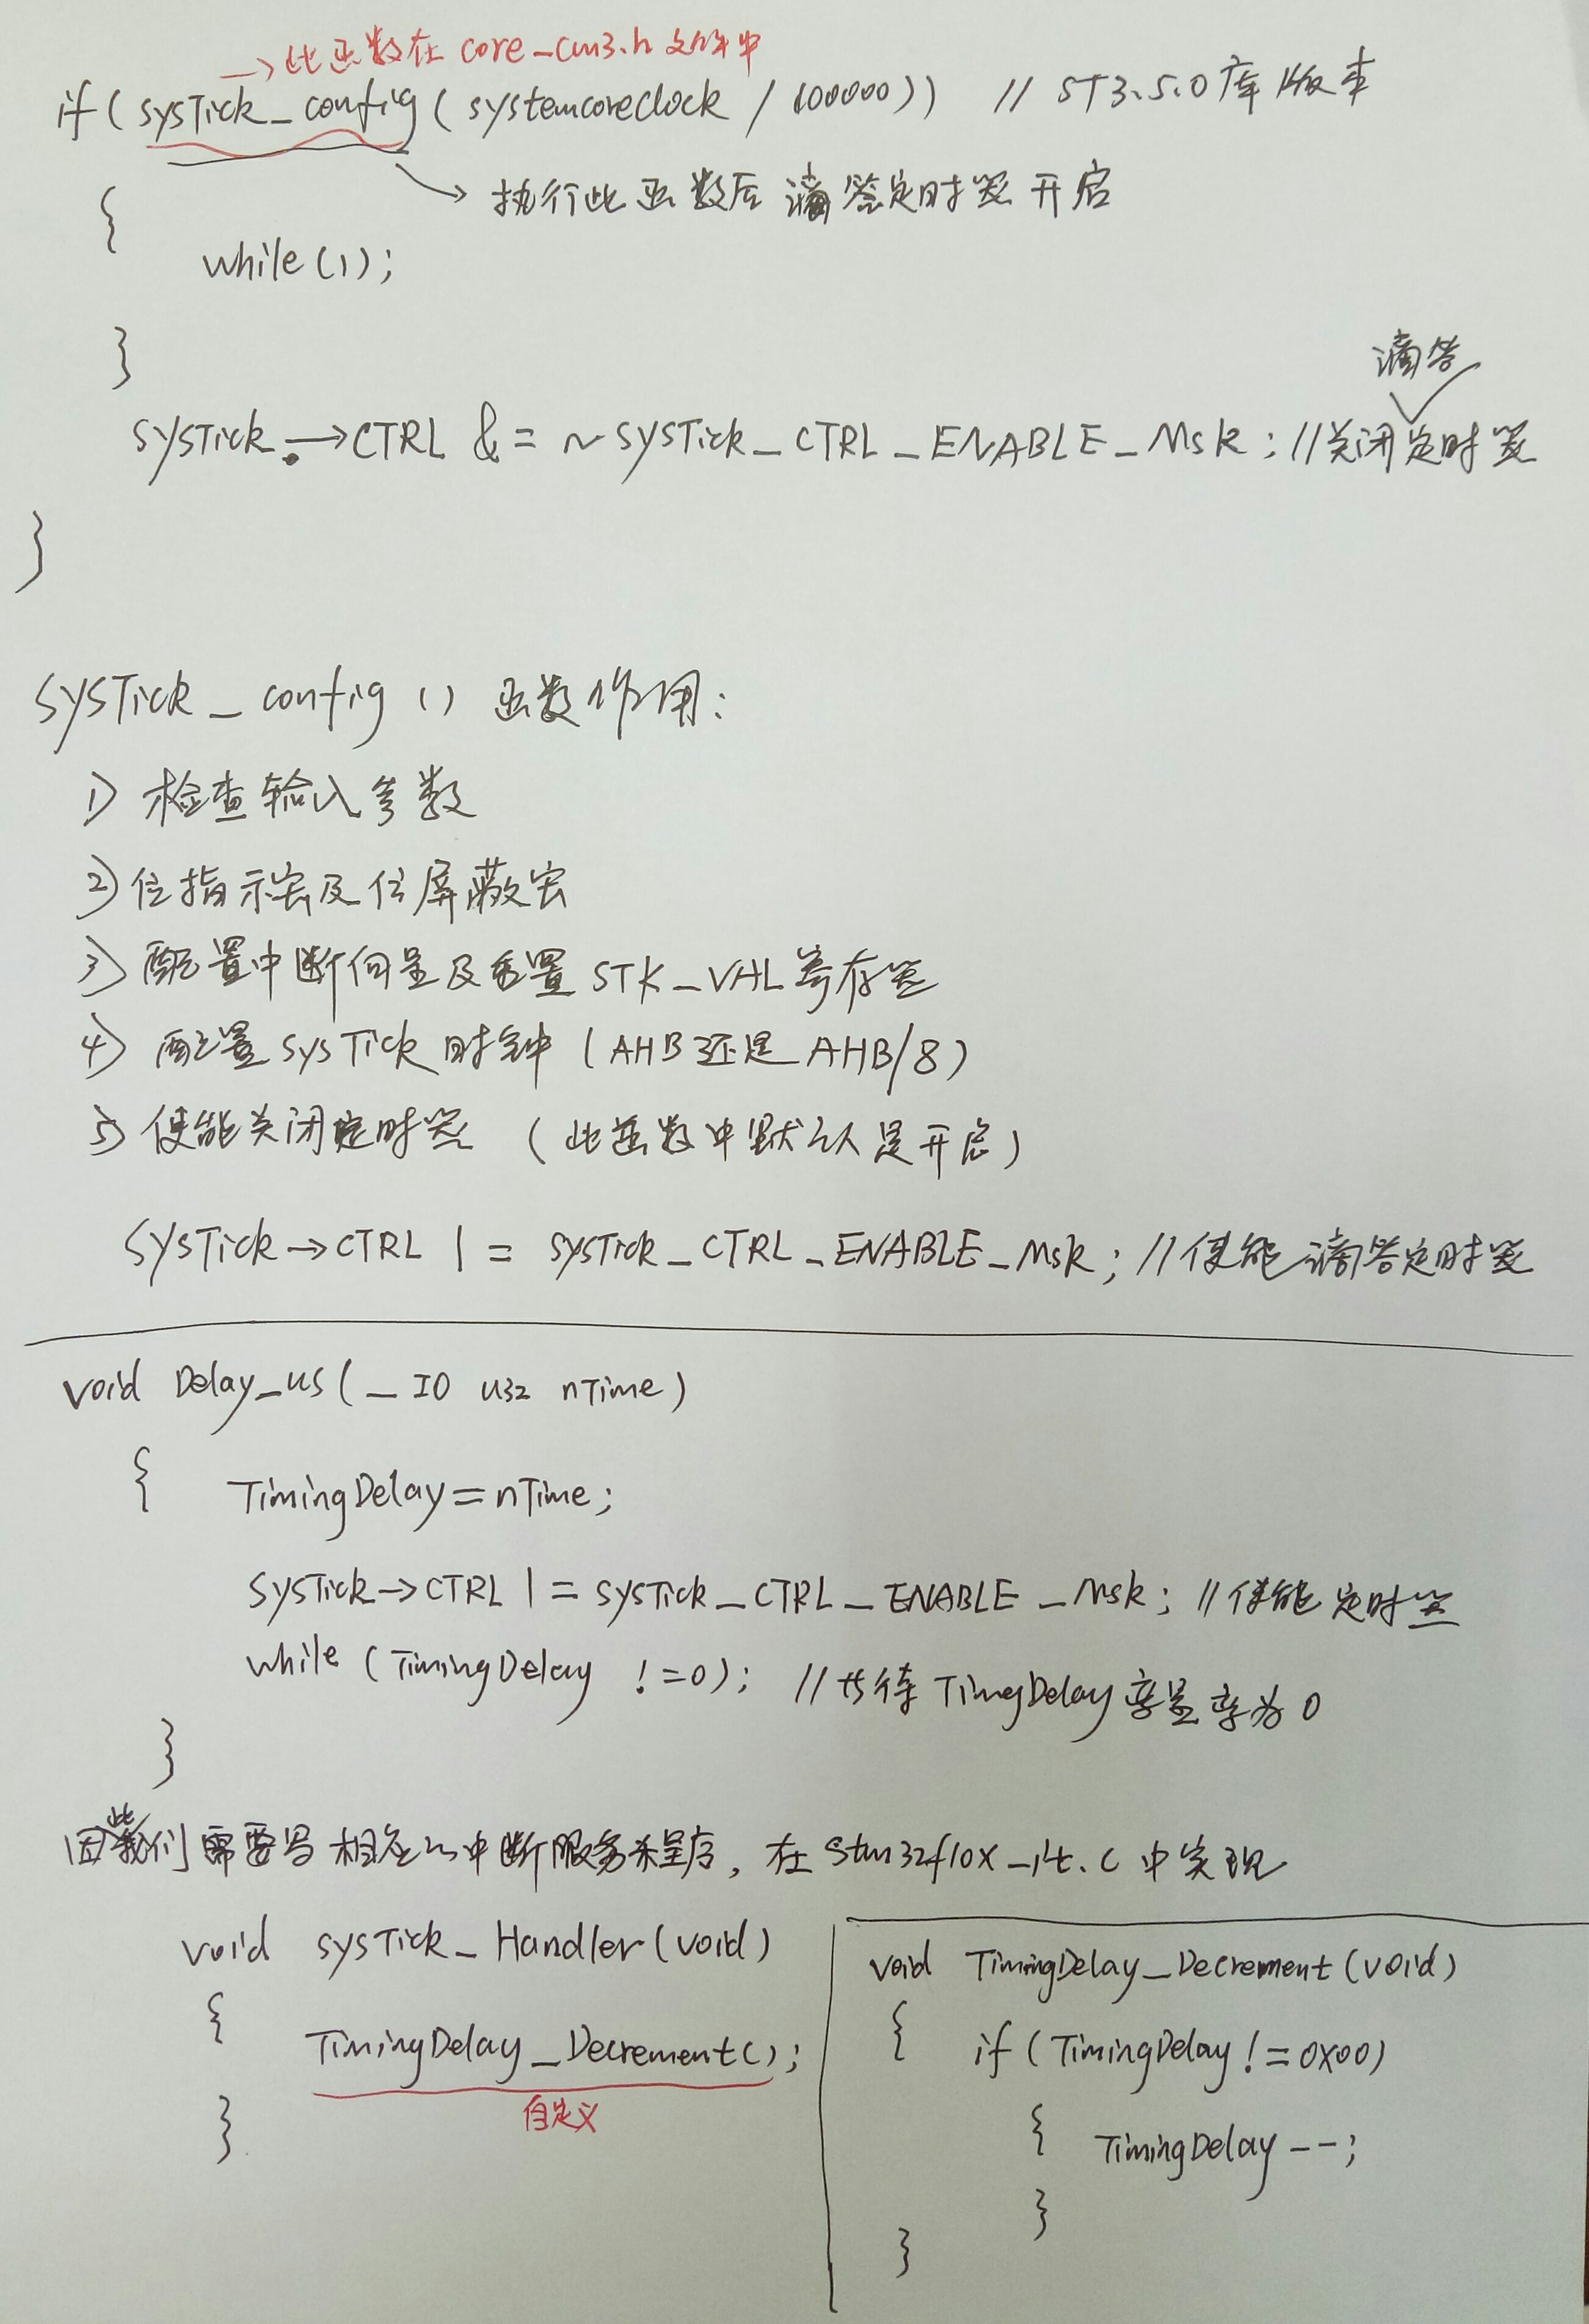 →此函数在 core_cm3.h 文件中
if(sysTick_config(systemcoreclock / 100000)) // ST3.5.0库版本
→ 执行此函数后 滴答定时器开启
{
while(1);
}
滴答
SysTick→CTRL &= ~SysTick_CTRL_ENABLE_Msk; //关闭定时器
}
SysTick_config () 函数作用:
1) 检查输入参数
2) 位指示宏及位屏蔽宏
3) 配置中断向量及重置 STK_VAL寄存器
4) 配置SysTick时钟 (AHB还是AHB/8)
5) 使能关闭定时器 (此函数中默认是开启)
SysTick→CTRL |= sysTick_CTRL_ENABLE_Msk; //使能滴答定时器
void Delay_us(_IO u32 nTime)
{ TimingDelay=nTime;
SysTick→CTRL |= SysTick_CTRL_ENABLE_Msk; //使能定时器
while (TimingDelay !=0); //等待 TimingDelay变量变为0
}
因此我们需要写相应的中断服务程序, 在stm32f10x_it.c中实现
void sysTick_Handler(void)
{
TimingDelay_Decrement();
自定义
}
void TimingDelay_Decrement(void)
{ if(TimingDelay!=0x00)
{ TimingDelay--;
}
}